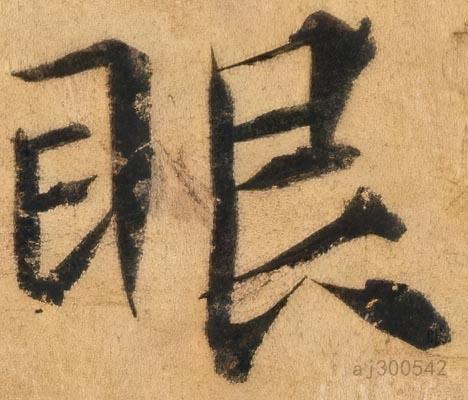 眼
aj300542